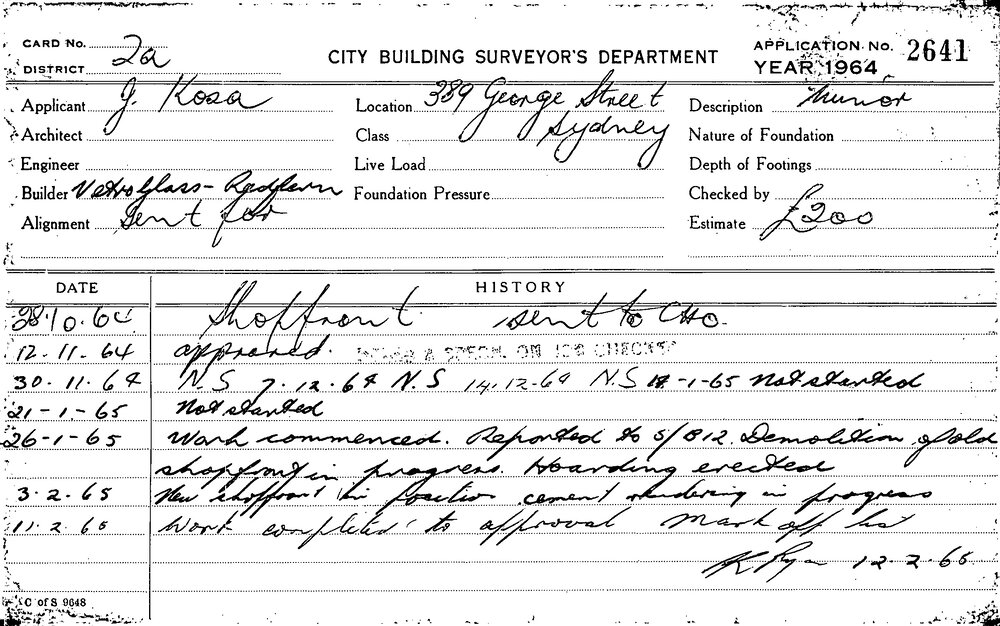 CARD No. 2a
DISTRICT
CITY BUILDING SURVEYOR'S DEPARTMENT
APPLICATION No. 2641
YEAR 1964
Applicant J. Kosa
Location 389 George Street
Sydney
Description Minor
Architect
Class
Nature of Foundation
Engineer
Live Load
Depth of Footings
Builder Vetroglass - Redfern
Foundation Pressure
Checked by
Alignment Sent for
Estimate £200
DATE HISTORY
28.10.64 Shopfront sent to CHO.
12-11-64 approved. ON JOB CHECKED
30.11.64 N.S 7.12.64 N.S 14.12.64 N.S 18-1-65 Not started
21-1-65 Not started
26-1-65 Work commenced. Reported to S/B12. Demolition of old
shopfront in progress. Hoarding erected
3.2.65 New shopfront in position cement rendering in progress
11.2.65 Work completed to approval Mark off list
K Ryan 12.2.65
C of S 9648